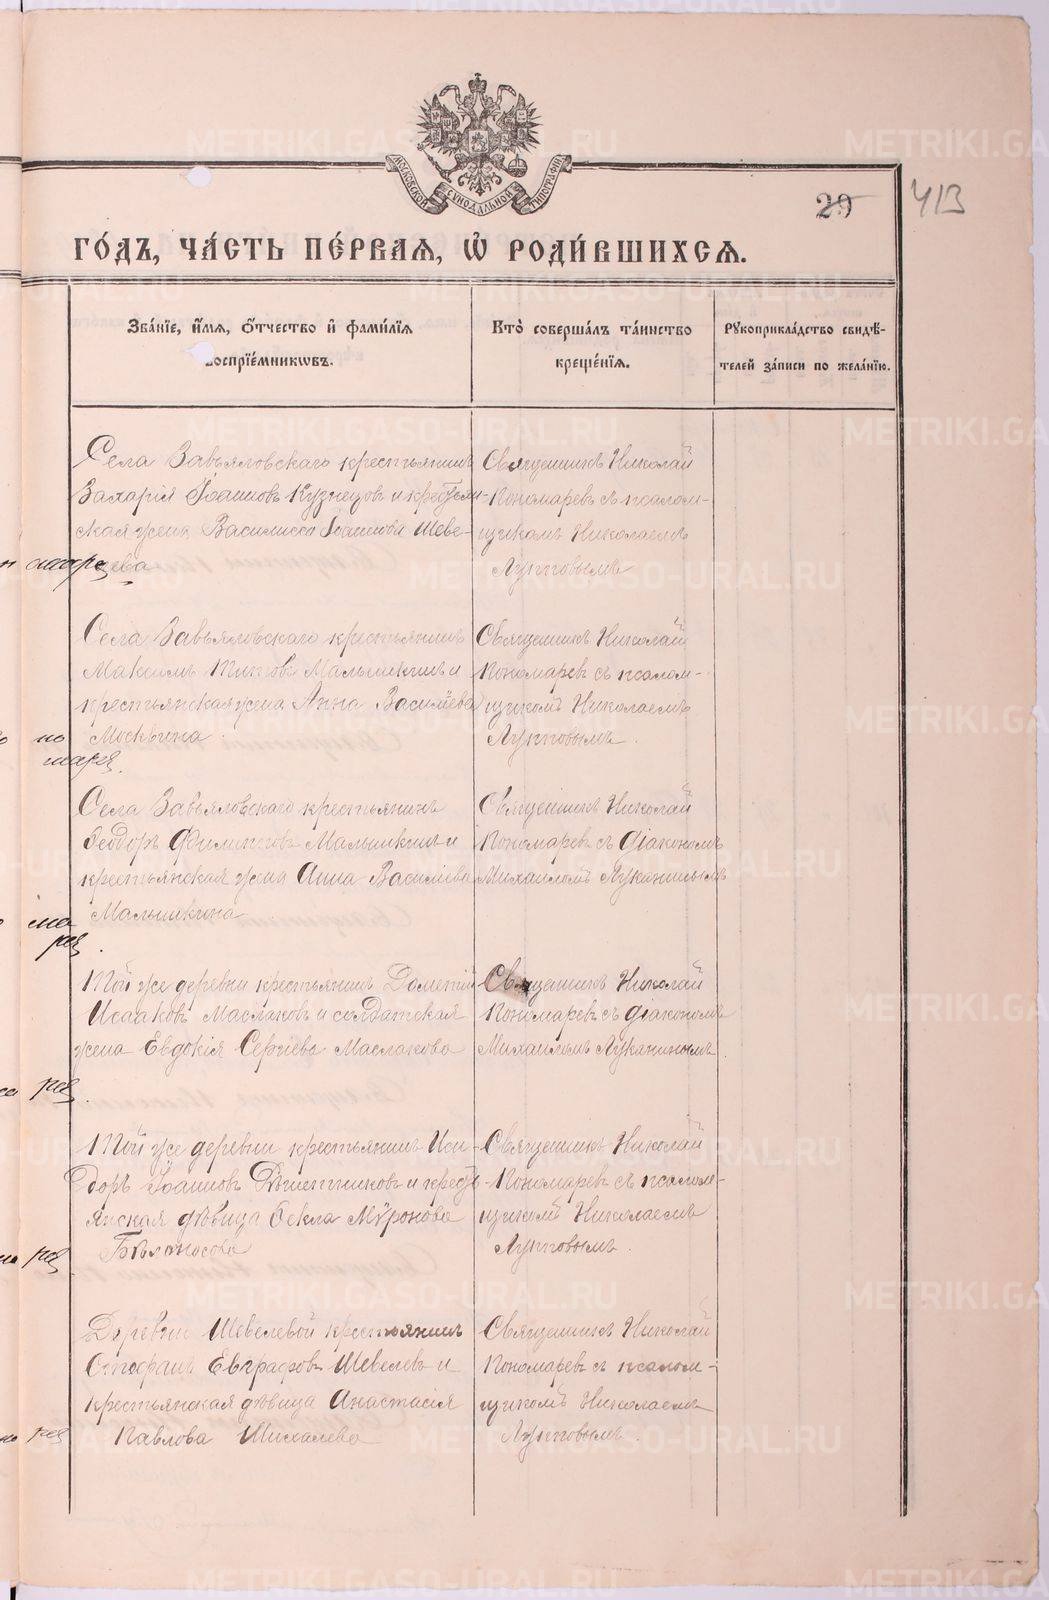 МОСКОВСКОЙ СУНОДАЛЬНОЙ ТИПОГРАФІИ
29 413
ГО́ДЪ, ЧА́СТЬ ПЕ́РВАЯ, Ѡ҆ РОДИ́ВШИХСЯ.
Зва́нїе, и҆́мя, ѻ҆́тчество и҆ фами́лїя
воспрїе́мникѡвъ.
Кто̀ соверша́лъ та́инство
креще́нїя.
Рꙋкоприкла́дство свидѣ́-
телей за́писи по жела́нїю.
Села Завьяловскаго крестьянинъ
Захарія Іоанновъ Кузнецовъ и крестьян-
ская жена Василисса Іоаннова Шеве-
лева
Священникъ Николай
Пономаревъ съ псалом-
щикомъ Николаемъ
Лупповымъ
Села Завьяловскаго крестьянинъ
Максимъ Титовъ Малышкинъ и
крестьянская жена Анна Василіева
Москвина
Священникъ Николай
Пономаревъ съ псалом-
щикомъ Николаемъ
Лупповымъ.
Села Завьяловскаго крестьянинъ
Ѳеодоръ Филипповъ Малышкинъ и
крестьянская жена Анна Василіева
Малышкина
Священникъ Николай
Пономаревъ съ діакономъ
Михаиломъ Луканинымъ
Той же деревни крестьянинъ Дометій
Исааковъ Маслаковъ и солдатская
жена Евдокія Сергіева Маслакова
Священникъ Николай
Пономаревъ съ діакономъ
Михаиломъ Луканинымъ.
Той же деревни крестьянинъ Иси-
доръ Іоанновъ Рѣшетниковъ и кресть-
янская дѣвица Ѳекла Мѵронова
Бѣлоносова
Священникъ Николай
Пономаревъ съ псалом-
щикомъ Николаемъ
Лупповымъ.
Деревни Шевелевой крестьянинъ
Стефанъ Евграфовъ Шевелевъ и
крестьянская дѣвица Анастасія
Павлова Шихалева
Священникъ Николай
Пономаревъ съ псалом-
щикомъ Николаемъ
Лупповымъ.
METRIKI.GASO-URAL.RU